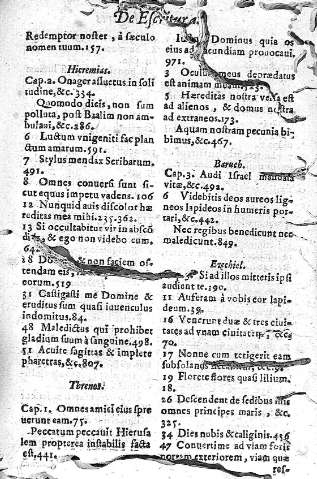 De Escritura.
Redemptor noster, à sæculo
nomen tuum. 157.
Hieremias.
Cap. 2. Onager assuetus in soli
tudine, &c. 334.
Quomodo dicis, non sum
polluta, post Baalim non am-
bulaui, &c. 286.
6 Luctum vnigeniti fac plan
ctum amarum. 591.
7 Stylus mendax Scribarum.
491.
8 Omnes conuersi sunt si-
cut equus impetu vadens. 106
12 Nunquid auis discolor hæ
reditas mea mihi. 235. 362.
13 Si occultabitur vir in abscõ
ditis, & ego non videbo eum.
64.
18 & non faciem os-
tendam eis,
eorum. 519
31 Castigasti me Domine &
eruditus sum quasi iuuenculus
indomitus. 84.
48 Maledictus qui prohibet
gladium suum à sanguine. 498.
51 Acuite sagittas & implete
pharetras, &c. 807.
Threnos.
Cap. 1. Omnes amici eius spre
uerunt eam. 75.
Peccatum peccauit Hierusa
lem propterea instabilis facta
est. 441.
Dominus quia os
eius ad iracundiam prouocaui.
971.
3 Oculus meus deprædatus
est animam meam. 723.
5 Hæreditas nostra versa est
ad alienos, & domus nostra
ad extraneos. 173.
Aquam nostram pecunia bi-
bimus, &c. 467.
Baruch.
Cap. 3. Audi Israel mandata
vitæ, &c. 492.
6 Videbitis deos aureos lig-
neos lapideos in humeris por-
tari, &c. 442.
Nec regibus benedicunt nec
maledicunt. 849.
Ezechiel.
Si ad illos mitteris ipsi
audient te. 390.
11 Auferam à vobis cor lapi-
deum. 39.
16 Venerunt duæ & tres ciui-
tates ad vnam ciuitatem, &c.
70.
17 Nonne cum tetigerit eam
subsolanus
19 Florete flores quasi lilium.
18.
26 Descendent de sedibus suis
omnes principes maris, &c.
325.
34 Dies nubis & caliginis. 436
47 Conuertime ad viam foris
exteriorem, viam quæ
res-